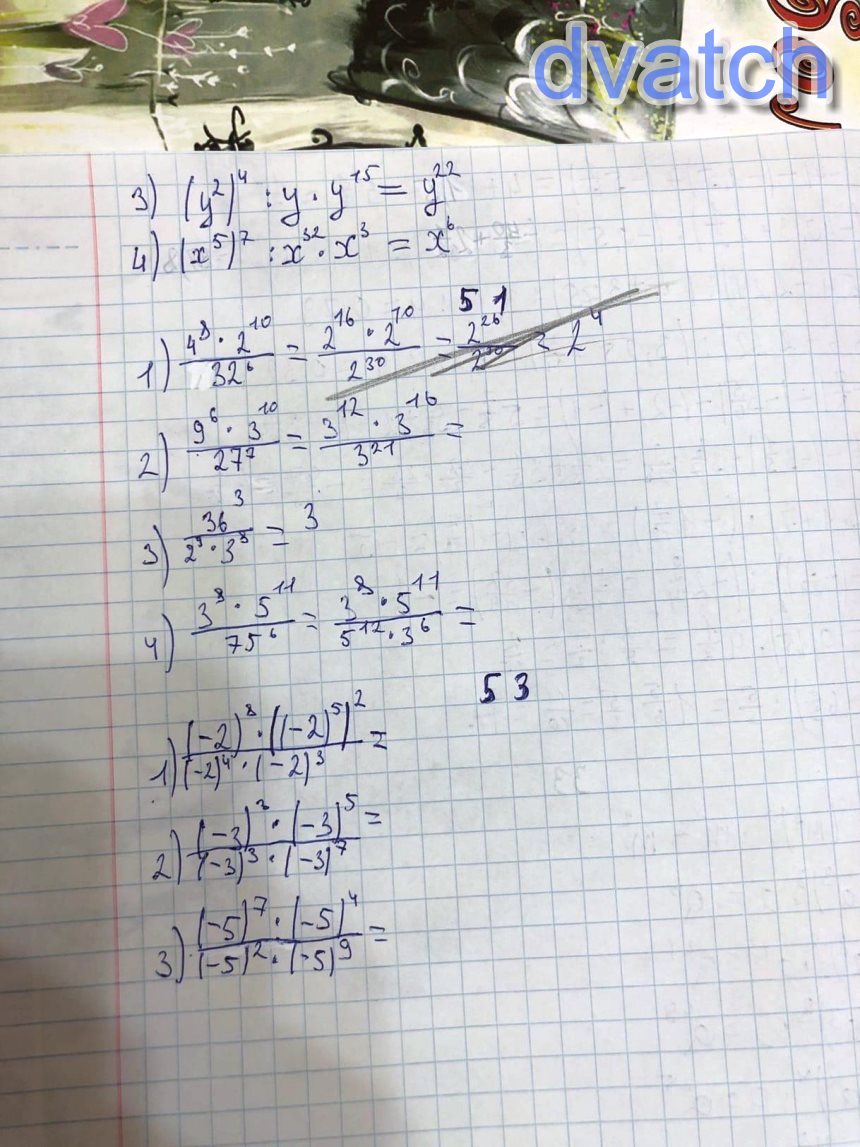 dvatch
3) (y²)⁴ : y · y¹⁵ = y²²
4) (x⁵)⁷ : x³² · x³ = x⁶
51
1) 4⁸ · 2¹⁰ / 32⁶ = 2¹⁶ · 2¹⁰ / 2³⁰ = 2²⁶ / 2³⁰ = 2⁴
2) 9⁶ · 3¹⁰ / 27⁷ = 3¹² · 3¹⁶ / 3²¹ =
3) 36³ / 2⁵ · 3⁸ = 3
4) 3⁸ · 5¹¹ / 75⁶ = 3⁸ · 5¹¹ / 5¹² · 3⁶ =
53
1) (-2)⁸ · ((-2)⁵)² / (-2)⁴ · (-2)³ =
2) (-3)³ · (-3)⁵ / (-3)³ · (-3)⁷ =
3) (-5)⁷ · (-5)⁴ / (-5)² · (-5)⁹ =